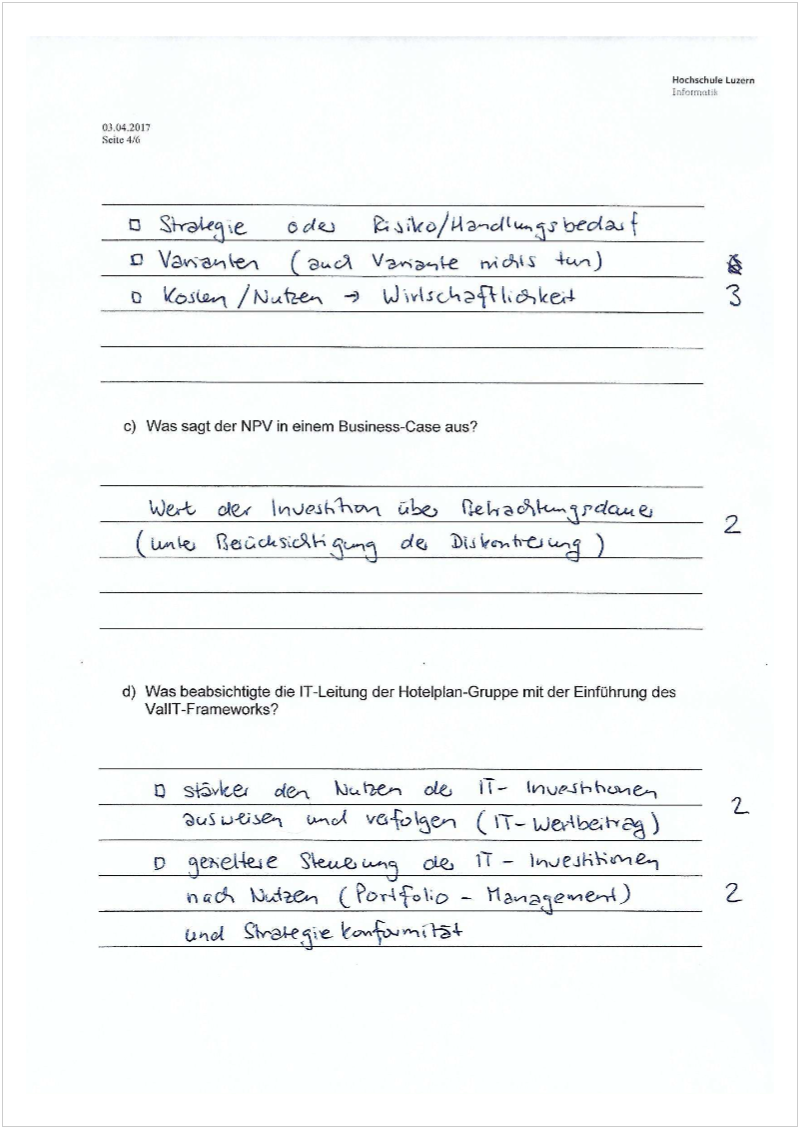 Hochschule Luzern
Informatik
03.04.2017
Seite 4/6
Strategie oder Risiko/Handlungsbedarf
Varianten (auch Variante nichts tun)
Kosten/Nutzen → Wirtschaftlichkeit 3
c) Was sagt der NPV in einem Business-Case aus?
Wert der Investition über Betrachtungsdauer 2
(unter Berücksichtigung der Diskontierung)
d) Was beabsichtigte die IT-Leitung der Hotelplan-Gruppe mit der Einführung des
ValIT-Frameworks?
stärker den Nutzen der IT-Investitionen
ausweisen und verfolgen (IT-Wertbeitrag) 2
gezieltere Steuerung der IT-Investitionen
nach Nutzen (Portfolio-Management) 2
und Strategiekonformität